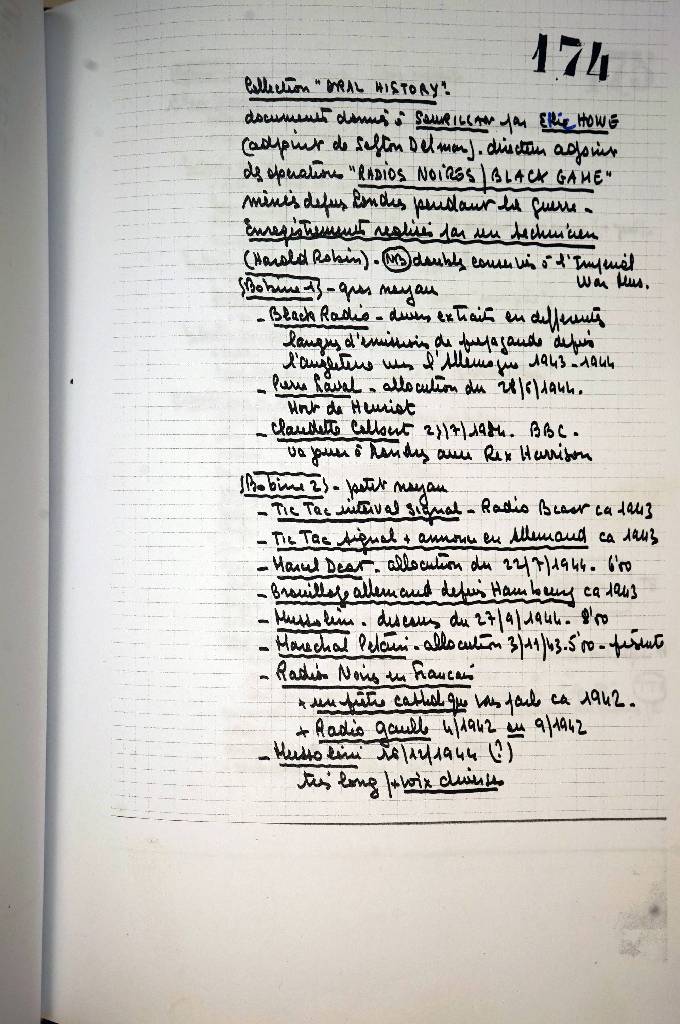 174
Collection "ORAL HISTORY".
documents donnés à SOUPILLAN par Ellic HOWE
(adjoint de Sefton Delmer). directeur adjoint
des opérations "RADIOS NOIRES / BLACK GAME"
menées depuis Londres pendant la guerre -
Enregistrements réalisés par un technicien
(Harold Robin) - NB doubles conservés à l'Imperial
War Mus.
{Bobine 1} - gros noyau
- Black Radio - divers extraits en différentes
langues d'émissions de propagande depuis
l'Angleterre vers l'Allemagne 1943-1944
- Pierre Laval - allocution du 28/6/1944.
Mort de Henriot
- Claudette Colbert 27/7/1984. BBC.
va jouer à Londres avec Rex Harrison
{Bobine 2} - petit noyau
- Tic Tac interval signal - Radio ca 1943
- Tic Tac signal + annonce en Allemand ca 1943
- Marcel Deat - allocution du 22/7/1944. 6'00
- Brouillage allemand depuis Hambourg ca 1943
- Mussolini - discours du 27/9/1944. 8'00
- Maréchal Pétain - allocution 3/11/43-5'00 -
- Radios Noires en Francais
+ un prêtre catholique vous parle ca 1942.
+ Radio Gaulle 4/1942 ou 9/1942
- Mussolini 16/12/1944 (?)
très long /+ voix diverses